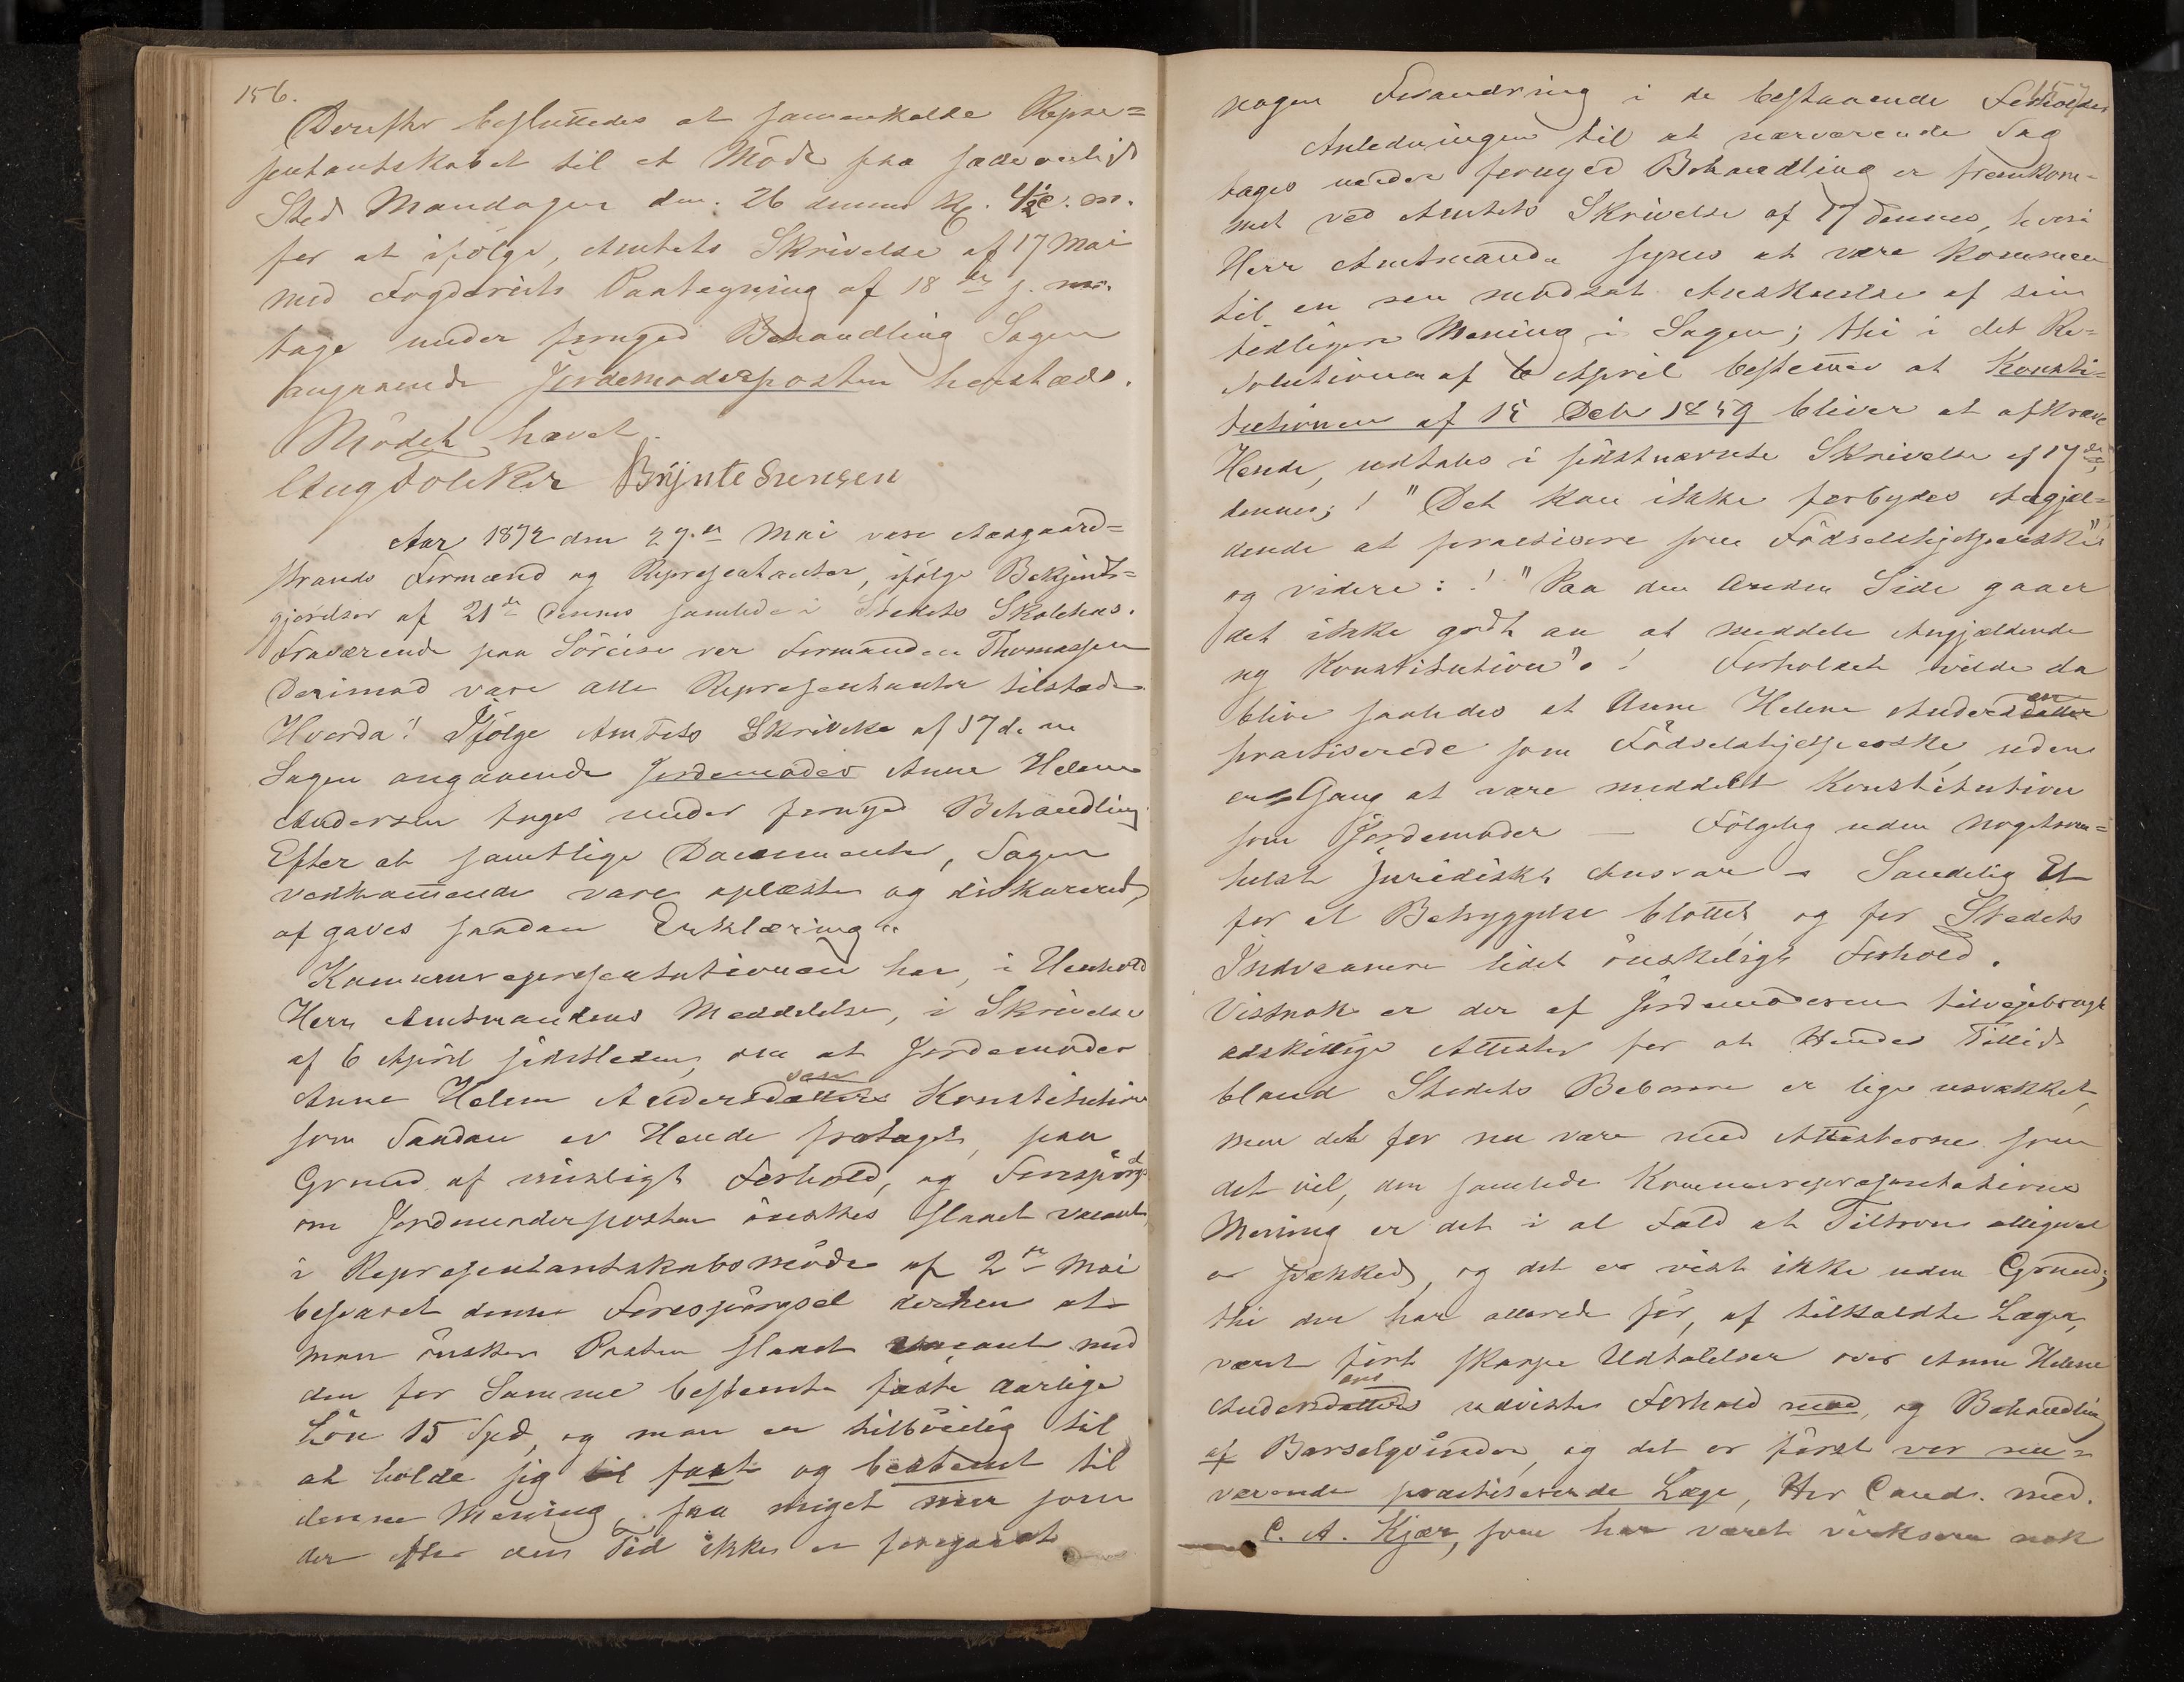 156.
Derefter besluttedes at sammenkalde Repre=
sentantskabet til et Möde paa sædvanligt
Sted Mandagen den 26 dennes Kl. 4½ e. m.
for at ifölge, Amtets Skrivelse af 17 Mai
med Fogderiets Paategning af 18de s. m.
tage under fornyed Behandling Sagen
angaaende Jordemoderposten herstæds.
Mödet hævet.
Aug Folcker Brÿnte Svensen
Aar 1872 den 29de Mai vare Aasgaard=
strands Formænd og Representanter, ifölge Bekjendt=
gjörelser af 21de dennes samlede i Stedets Skolehus.
Fraværende paa Söreise var Formanden Thomassen
Derimod vare alle Representanter tilstæde
Hvorda! Ifölge Amtets Skrivelse af 17 d. m
Sagen angaaende Jordemoder Anne Helene
Andersen toges under fornyed Behandling
Efter at samtlige Documenter, Sagen
vedkommende vare oplæste og diskuteret,
afgaves saadan Erklæring".
Kommunerepresentationen har, i Henhold
Herr Amtmandens Meddelelse, i Skrivelse
af 6 April sidstleden, om at Jordemoder
Anne Helene Andersdatters Konstitution
sens
som Saadan er Hende frataget, paa
Grund af misligt Forhold, og Forespörgs
om Jordemoderposten önskes slaaet vacant,
i Representantskabsmöde af 2de Mai
besvaret denne Forespörgsel derhen at
man önsker Posten slaaet vacant med
den for Samme bestemte faste aarlige
Lön 15 Spd, og man er tilböielig til
at holde sig til fast og bestemt til
denne Mening, saa meget mer som
der efter den Tid ikke er foregaaet
nogen Forandring i de bestaaende Forholde
Anledningen til at nærværende Sag
tages under fornyed Behandling er fremkom=
met ved Amtets Skrivelse af 17 dennes, hvori
Herr Amtmanden synes at være kommen
til en ren modsat Anskuelse af sin
tidligere Mening i Sagen; thi i det Re=
solutionen af 6 April bestemmer at Konsti=
tutionen af 15 Debr 1859 bliver at afkræve
Hende, udtales i sidstnævnte Skrivelse af 17de
dennes; ! "Det kan ikke forbydes Angjæl=
dende at practisere som Födselshjelperske"
og videre: ! "Paa den anden Side gaaer
det ikke godt an at meddele Angjældende
ny Konstitution". ! Forholdet vilde da
blive saaledes at Anne Helene Andersdatter
en
practiserede som Födselshjelperske uden
engang at være meddelt Konstitution
som Jordemoder — Fölgelig uden nogetsom=
helst juridiskt Ansvar — Sandelig Et
for al Betryggelse blottet, og for Stedets
Indvaanere lidet önskeligt Forhold.
Vistnok er der af Jordemoderen tilvejebragt
adskillige Attester for at Hendes Tillid
bland Stedets Beboere er lige usvækket,
men det for nu være med Attesterne som
det vil, den samlede Kommunerepresentations
Mening er det i al Fald at Tiltroen alligevel
er svækked, og det er vist ikke uden Grund;
thi der har allerede för, af tilkaldte Læger,
været fört skarpe Udtalelser over Anne Helene
Andersdatters udviste Forhold mod, og Behandling
ens
af Barselqvinder, og det er först vor nu=
værende practiserende Læge, Hr Cand. med.
C. A. Kjær, som har været virksom nok